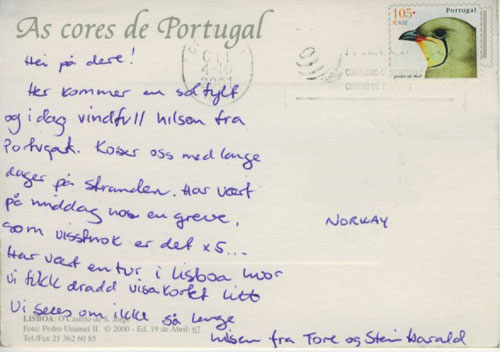 As cores de Portugal
105
€ 0,52
Portugal
2001
Hei på dere!
Her kommer en solfylt
og i dag vindfull hilsen fra
Portugal. Koser oss med lange
dager på stranden. Har vært
på middag hos en greve,
som visstnok er det x5...
Har vært en tur i Lisboa hvor
vi fikk dradd visakortet litt
Vi sees om ikke så lenge
NORWAY
hilsen fra Tore og Stein Harald
LISBOA: O Castelo de S. Jorge
Foto: Pedro Unamet II. © 2000 - Ed. 19 de Abril: n2
Tel/Fax 21 362 60 85